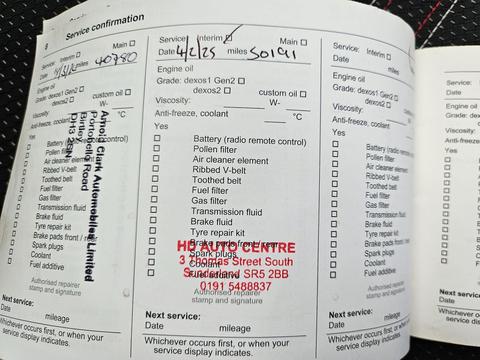 8
Service confirmation
Main ☐
miles 40780
Engine oil
Grade: dexos1 Gen2 ☐
dexos2 ☐
custom oil ☐
Viscosity:
W-
Anti-freeze, coolant
°C
Yes
Battery (radio remote control)
Pollen filter
Air cleaner element
Ribbed V-belt
Toothed belt
Fuel filter
Gas filter
Transmission fluid
Brake fluid
Tyre repair kit
Brake pads front / rear
Spark plugs
Coolant
Fuel additive
Authorised repairer
stamp and signature
Arnold Clark Automobiles Limited
Portobello Road
Birtley
Next service:
Date
mileage
Whichever occurs first, or when your
service display indicates.
Service: Interim ☑
Main ☐
Date 4/2/25 miles 50191
Engine oil
Grade: dexos1 Gen2 ☐
dexos2 ☐
custom oil ☐
Viscosity:
W-
Anti-freeze, coolant
°C
Yes
Battery (radio remote control)
Pollen filter
Air cleaner element
Ribbed V-belt
Toothed belt
Fuel filter
Gas filter
Transmission fluid
Brake fluid
Tyre repair kit
Brake pads front / rear
Spark plugs
Coolant
Fuel additive
HD AUTO CENTRE
3 Thomas Street South
Sunderland SR5 2BB
0191 5488837
Authorised repairer
stamp and signature
Next service:
Date
mileage
Whichever occurs first, or when your
service display indicates.
Service: Interim ☐
Main ☐
Date
miles
Engine oil
Grade: dexos1 Gen2 ☐
dexos2 ☐
custom oil
Viscosity:
W-
Anti-freeze, coolant
Yes
Battery (radio remote control)
Pollen filter
Air cleaner element
Ribbed V-belt
Toothed belt
Fuel filter
Gas filter
Transmission fluid
Brake fluid
Tyre repair kit
Brake pads front / rear
Spark plugs
Coolant
Fuel additive
Authorised repairer
stamp and signature
Next service:
Date
mileage
Whichever occurs first, or when your
service display indicates.